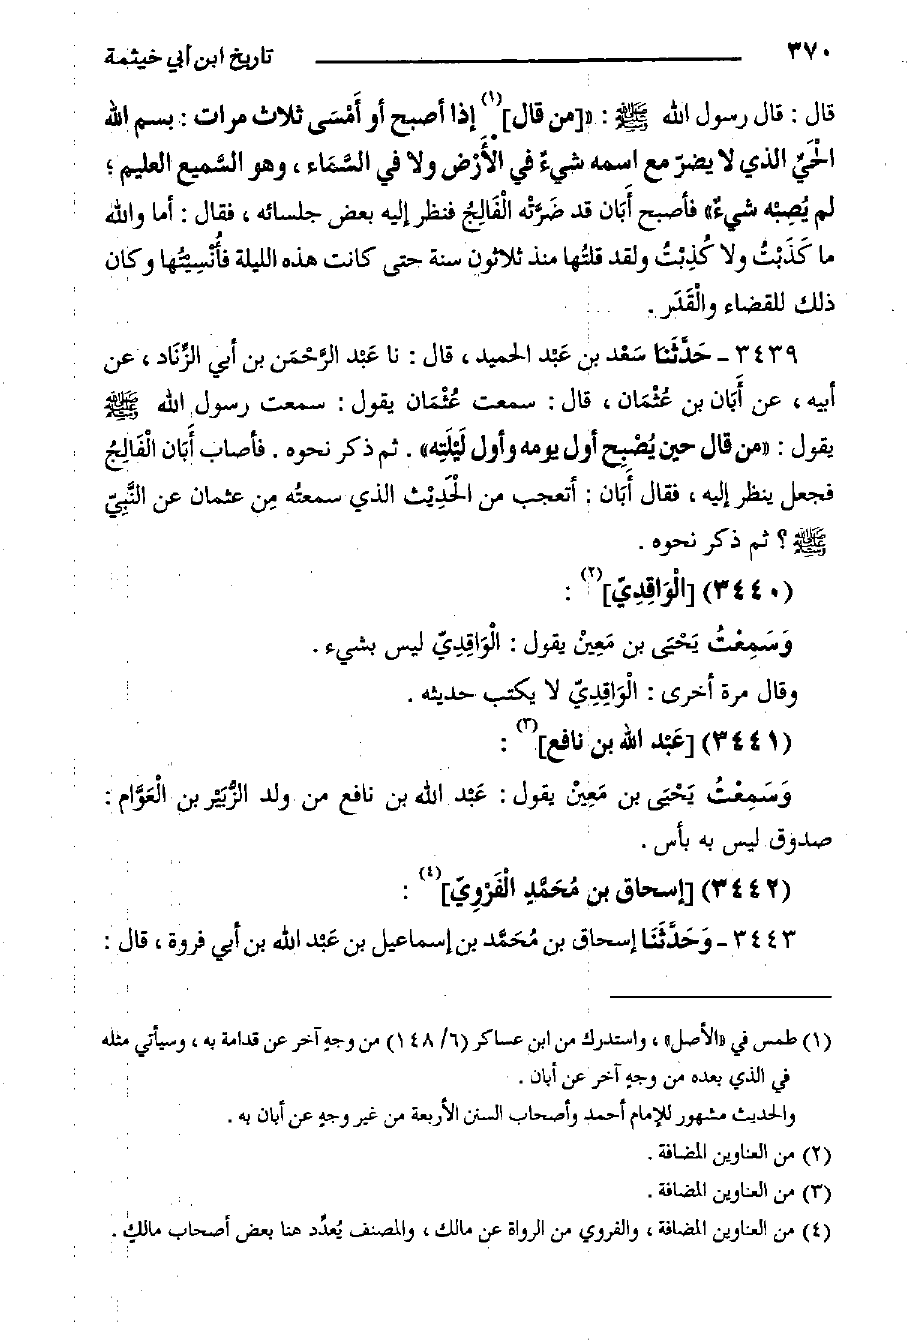 ٣٧٠ تاريخ ابن أبي خيثمة
قال : قال رسول الله ﷺ : «[من قال](١) إذا أصبح أو أَمْسَى ثلاث مرات : بسم الله
الْحَيِّ الذي لا يضرّ مع اسمه شيءٌ في الْأَرْض ولا في السَّمَاء ، وهو السَّميع العليم ؛
لم يُصِبْه شيءٌ» فأصبح أَبَان قد ضَرَّتْه الْفَالِجُ فنظر إليه بعض جلسائه ، فقال : أما والله
ما كَذَبْتُ ولا كُذِبْتُ ولقد قلتُها منذ ثلاثون سنة حتى كانت هذه الليلة فأُنْسِيْتُها وكان
ذلك للقضاء والْقَدَر .
٣٤٣٩ - حَدَّثَنَا سَعْد بن عَبْد الحميد ، قال : نا عَبْد الرَّحْمَن بن أبي الزِّنَاد ، عن
أبيه ، عن أَبَان بن عُثْمَان ، قال : سمعت عُثْمَان يقول : سمعت رسول الله ﷺ
يقول : «من قال حين يُصْبِح أول يومه وأول لَيْلَتِه» . ثم ذكر نحوه . فأصاب أَبَان الْفَالِجُ
فجعل ينظر إليه ، فقال أَبَان : أتعجب من الْحَدِيْث الذي سمعتُه مِن عثمان عن النَّبِيّ
ﷺ ؟ ثم ذكر نحوه .
(٣٤٤٠) [الْوَاقِدِيّ](٢) :
وَسَمِعْتُ يَحْيَى بن مَعِيْنْ يقول : الْوَاقِدِيّ ليس بشيء .
وقال مرة أخرى : الْوَاقِدِيّ لا يكتب حديثه .
(٣٤٤١) [عَبْد الله بن نافع](٣) :
وَسَمِعْتُ يَحْيَى بن مَعِيْنْ يقول : عَبْد الله بن نافع من ولد الزُّبَيْر بن الْعَوَّام :
صدوق ليس به بأس .
(٣٤٤٢) [إسحاق بن مُحَمَّدٍ الْفَرْوِيّ](٤) :
٣٤٤٣ - وَحَدَّثَنَا إسحاق بن مُحَمَّد بن إسماعيل بن عَبْد الله بن أبي فروة ، قال :
(١) طمس في «الأصل» ، واستدرك من ابن عساكر (٦/ ١٤٨) من وجهٍ آخر عن قدامة به ، وسيأتي مثله
في الذي بعده من وجهٍ آخر عن أبان .
والحديث مشهور للإمام أحمد وأصحاب السنن الأربعة من غير وجهٍ عن أبان به .
(٢) من العناوين المضافة .
(٣) من العناوين المضافة .
(٤) من العناوين المضافة ، والفروي من الرواة عن مالك ، والمصنف يُعدِّد هنا بعض أصحاب مالك .